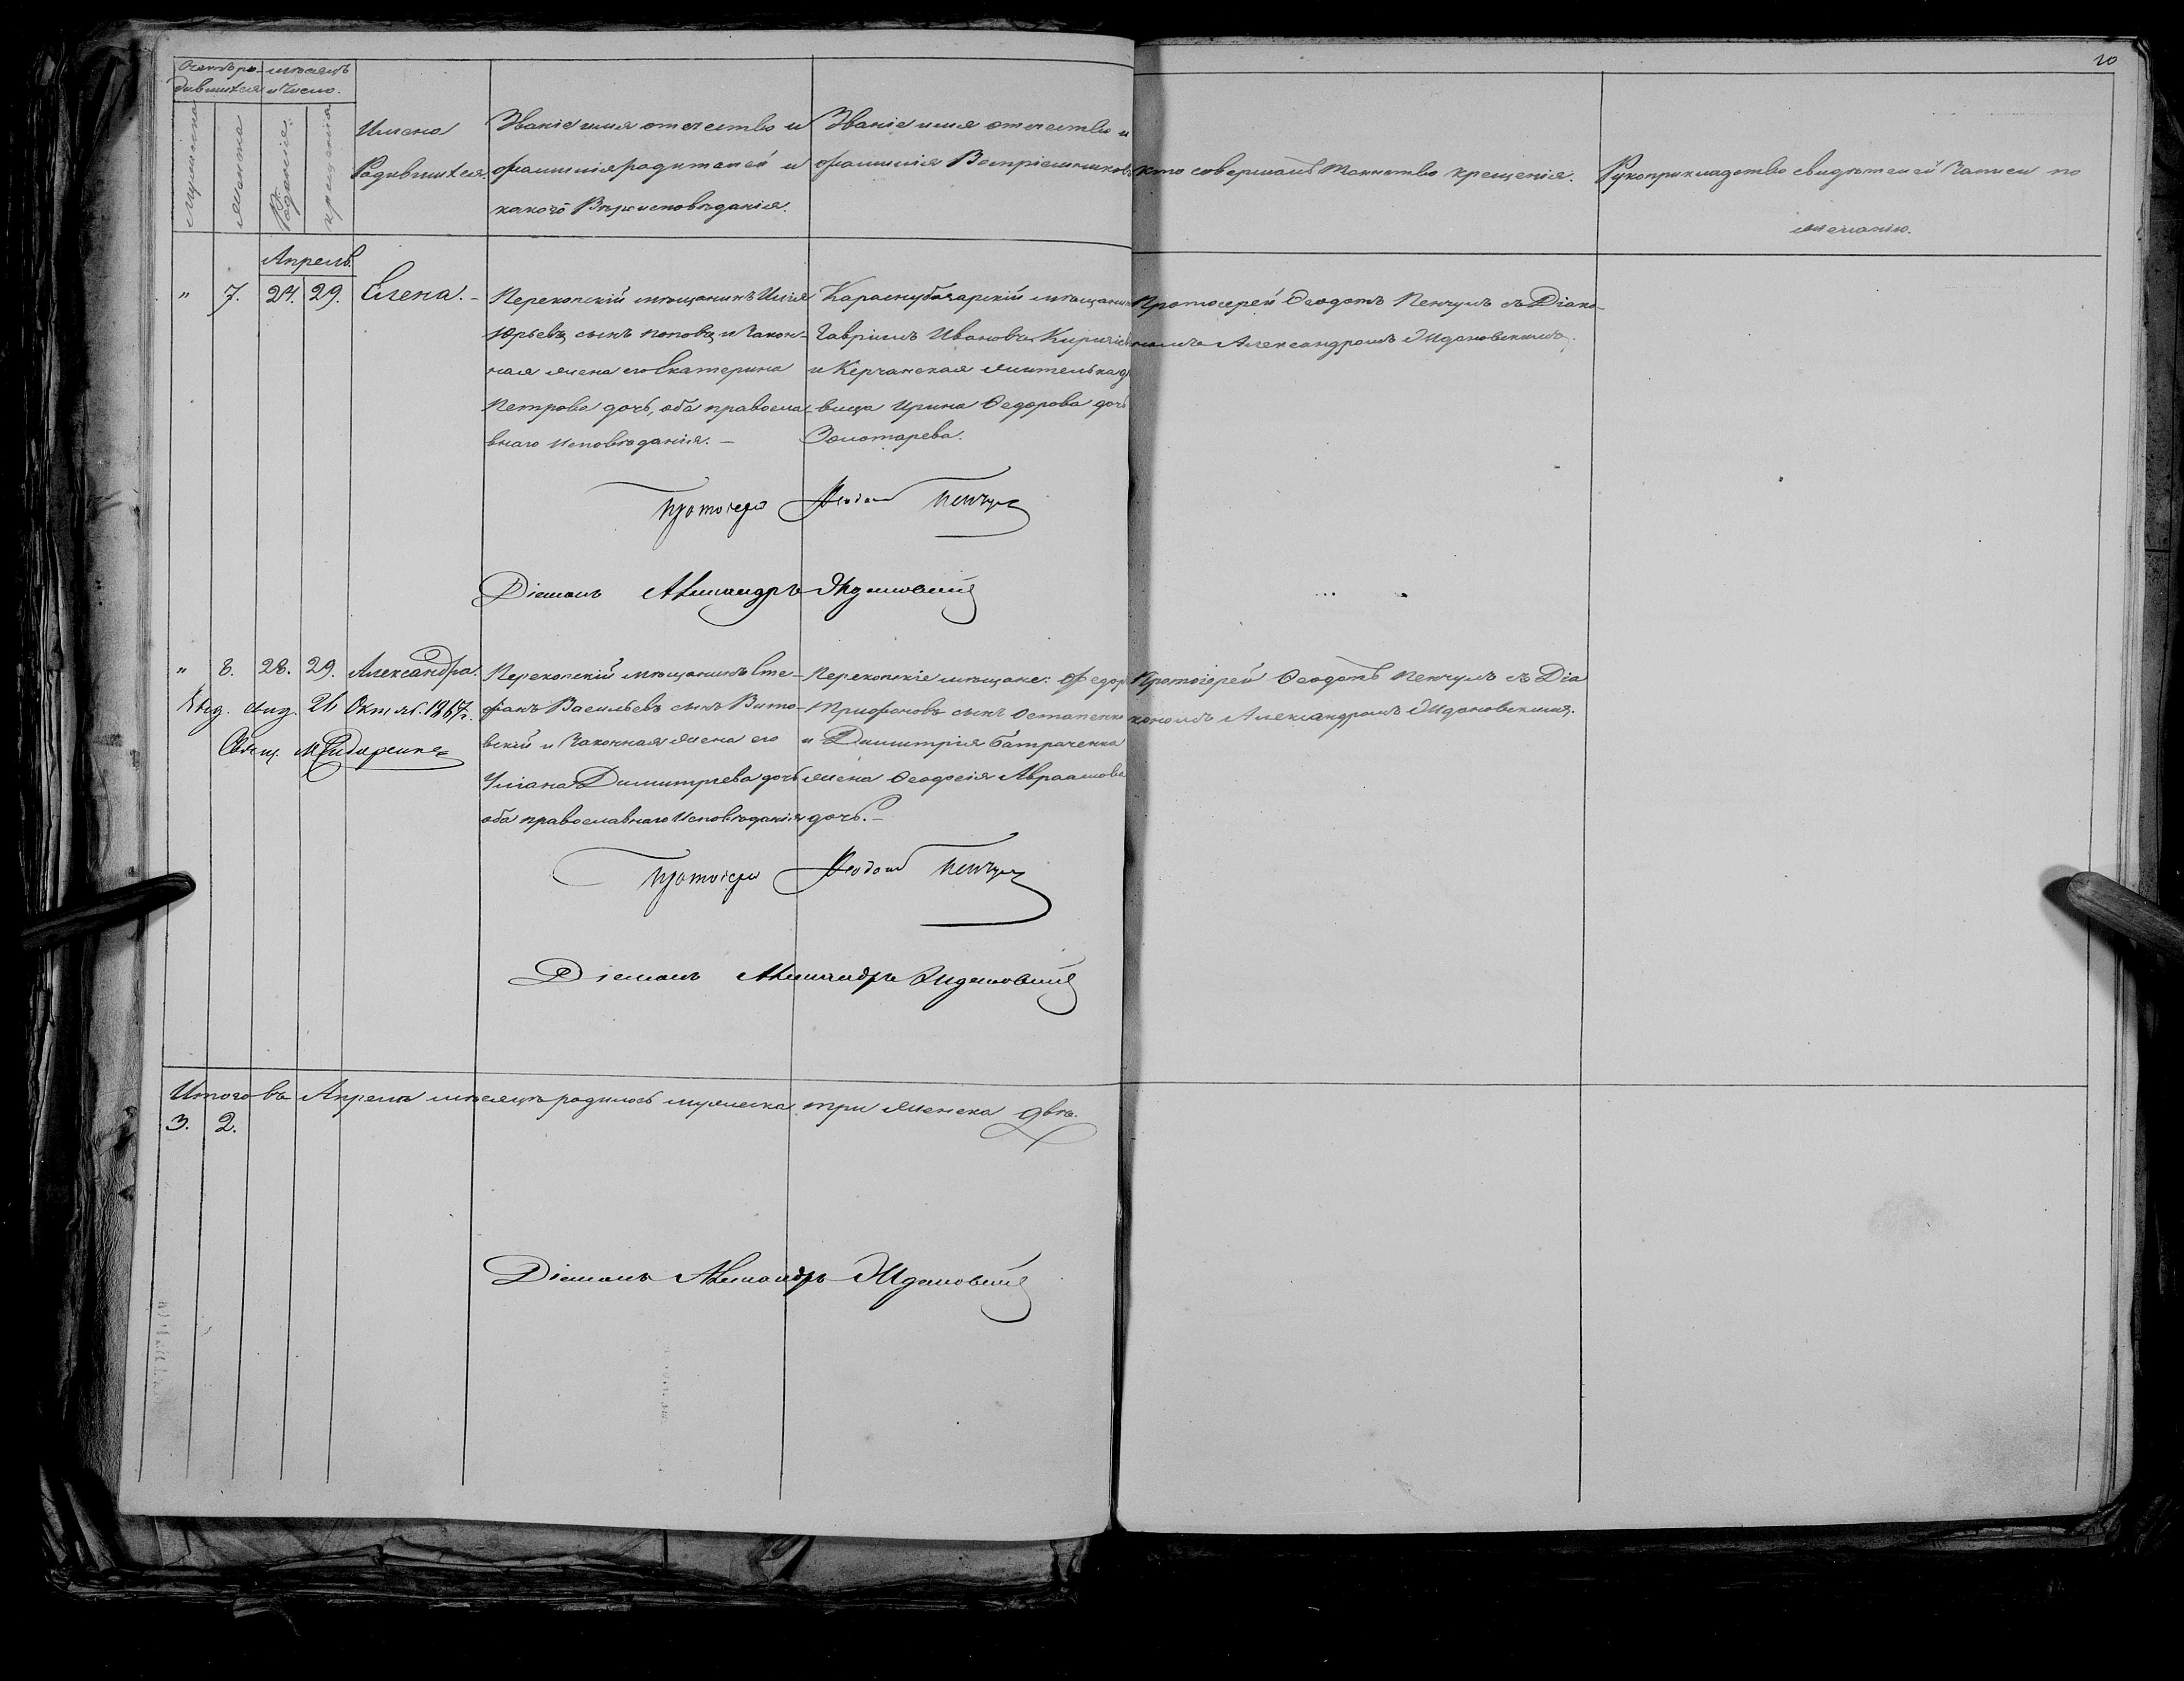 20
Счетъ ро- мѣсяцъ
дившихся и число.
Мужеска
женска
Рожденія.
крещенія
Имена
Родившихся.
Званіе имя отечество и
фамилія родителей и
какого Вѣроисповѣданія.
Званіе имя отечество и
фамилія Воспріемниковъ
Кто совершалъ таинство крещенія.
Рукоприкладство свидѣтелей Записи по
желанію.
Апрель.
" 7. 24. 29. Елена. -
Перекопскій мѣщанинъ Илія
Юрьевъ сынъ Поповъ и Закон-
ная жена его Екатерина
Петрова дочь, оба правосла-
внаго Исповѣданія. -
Карасубазарскій мѣщанин
Гавріилъ Ивановъ
и Керчанская жителька
Ирина Ѳедорова дочь
Золотарева.
Протоіерей Ѳеодотъ Пенчулъ съ Діако-
номъ Александромъ Ждановскимъ.
Протоіерей Ѳеодотъ Пенчулъ
Діаконъ Александръ Ждановскій
" 8. 28. 29. Александра.
Выд. свид. 21 Октяб. 1867 г.
Свящ.
Перекопскій мѣщанинъ Сте-
фанъ Васильевъ сынъ Вито-
вскій и Законная жена его
Уліана Димитріева дочь
оба православнаго Исповѣданія
Перекопскіе мѣщане: Федор
Трифоновъ сынъ Остапенко
и Димитрія Батраченка
жена Ѳеодосія Авраамова
дочь. -
Протоіерей Ѳеодотъ Пенчулъ съ Діа
кономъ Александромъ Ждановскимъ.
Протоіерей Ѳеодотъ Пенчулъ
Діаконъ Александръ Ждановскій
Итого въ Апрелѣ мѣсяцѣ родилось мужеска три женска двѣ.
3. 2.
Діаконъ Александръ Ждановскій